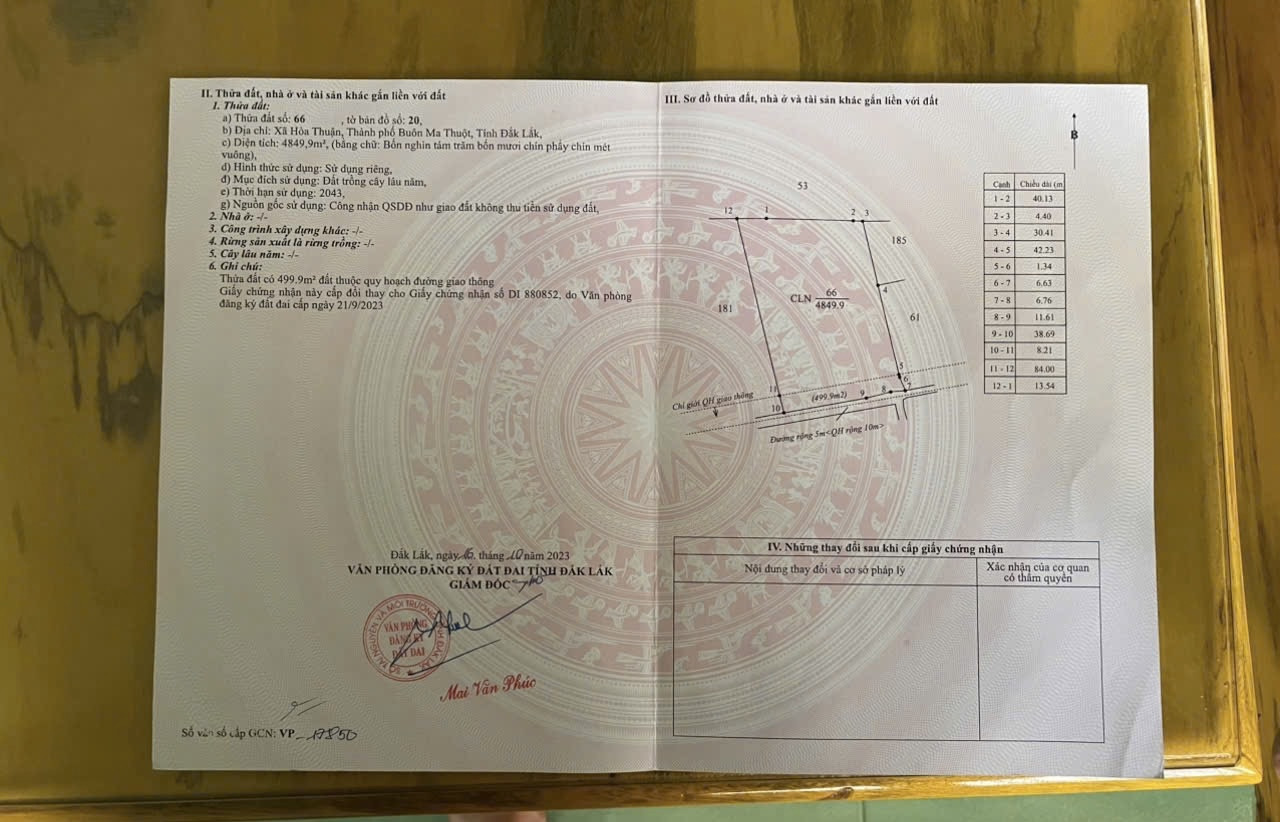 II. Thửa đất, nhà ở và tài sản khác gắn liền với đất
1. Thửa đất:
a) Thửa đất số: 66 , tờ bản đồ số: 20,
b) Địa chỉ: Xã Hòa Thuận, Thành phố Buôn Ma Thuột, Tỉnh Đắk Lắk,
c) Diện tích: 4849,9m², (bằng chữ: Bốn nghìn tám trăm bốn mươi chín phẩy chín mét
vuông),
d) Hình thức sử dụng: Sử dụng riêng,
đ) Mục đích sử dụng: Đất trồng cây lâu năm,
e) Thời hạn sử dụng: 2043,
g) Nguồn gốc sử dụng: Công nhận QSDĐ như giao đất không thu tiền sử dụng đất,
2. Nhà ở: -/-
3. Công trình xây dựng khác: -/-
4. Rừng sản xuất là rừng trồng: -/-
5. Cây lâu năm: -/-
6. Ghi chú:
Thửa đất có 499.9m² đất thuộc quy hoạch đường giao thông
Giấy chứng nhận này cấp đổi thay cho Giấy chứng nhận số DI 880852, do Văn phòng
đăng ký đất đai cấp ngày 21/9/2023
Đắk Lắk, ngày 16 tháng 10 năm 2023
VĂN PHÒNG ĐĂNG KÝ ĐẤT ĐAI TỈNH ĐẮK LẮK
GIÁM ĐỐC
VĂN PHÒNG
ĐĂNG KÝ
ĐẤT ĐAI
Mai Văn Phúc
Số vào sổ cấp GCN: VP_17850
III. Sơ đồ thửa đất, nhà ở và tài sản khác gắn liền với đất
B
53
12 1 2 3
185
4
CLN 66
4849.9
181
61
5
6
7
8
9
(499.9m2)
11
10
Chỉ giới QH giao thông
Đường rộng 5m<QH rộng 10m>
Cạnh Chiều dài (m
1 - 2 40.13
2 - 3 4.40
3 - 4 30.41
4 - 5 42.23
5 - 6 1.34
6 - 7 6.63
7 - 8 6.76
8 - 9 11.61
9 - 10 38.69
10 - 11 8.21
11 - 12 84.00
12 - 1 13.54
IV. Những thay đổi sau khi cấp giấy chứng nhận
Nội dung thay đổi và cơ sở pháp lý
Xác nhận của cơ quan
có thẩm quyền